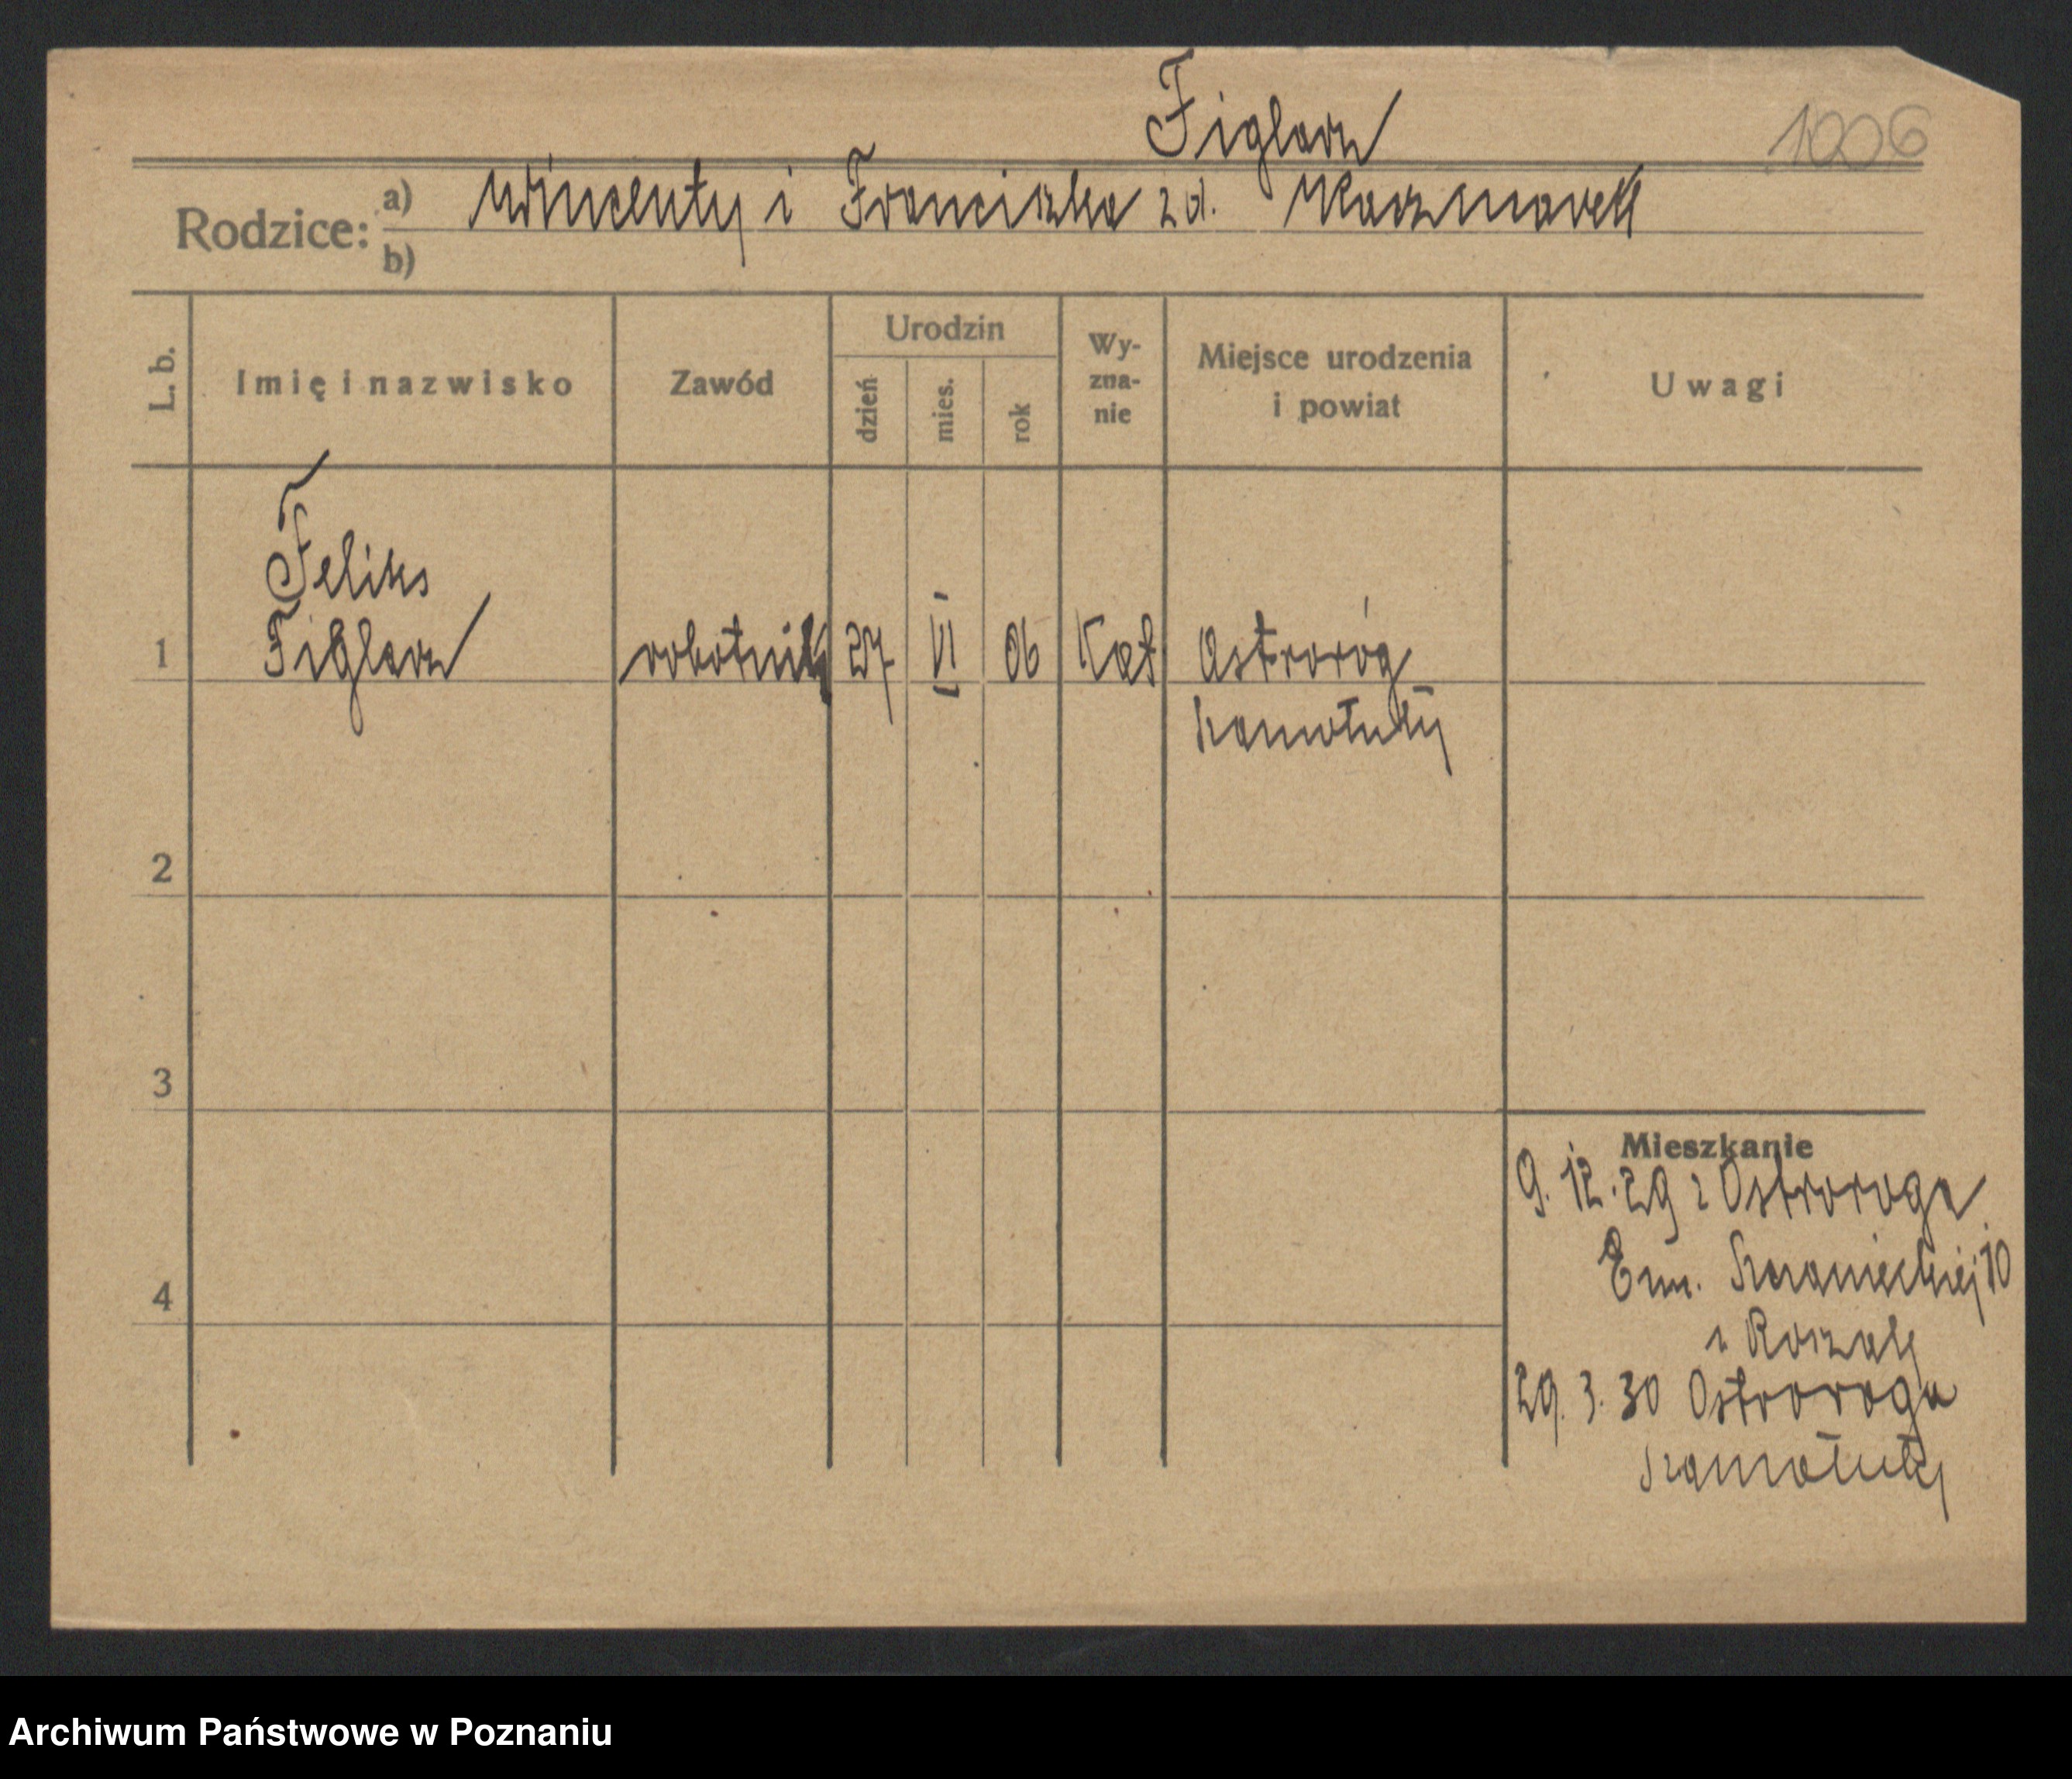 Figlarz
1006
Rodzice: a) Wincenty i Franciszka z d. Kaczmarek
b)
L. b. Imię i nazwisko Zawód Urodzin dzień mies. rok Wyzna-nie Miejsce urodzenia i powiat Uwagi
Feliks
1 Figlarz robotnik 27 VI 06 Kat Ostroróg
Szamotuły
2
3
Mieszkanie
9. 12. 29 z Ostroroga
Em. Sczanieckiej 10
4
29. 3. 30 Ostroroga
Szamotuły
Archiwum Państwowe w Poznaniu